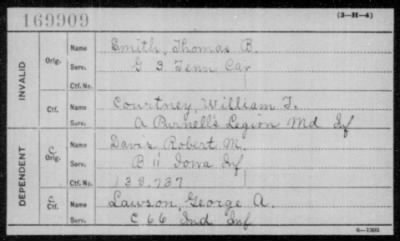 169909
(3-H-4)
INVALID
Orig. Name Smith, Thomas B.
Serv. G 3 Tenn Cav
Ctf. No.
Ctf. Name Courtney, William T.
Serv. A Purnell's Legion Md Inf
DEPENDENT
C Orig. Name Davis Robert M.
Serv. B 11 Iowa Inf
Ctf. No. 138,737
Ctf. Name Lawson, George A.
Serv. C 66 Ind Inf